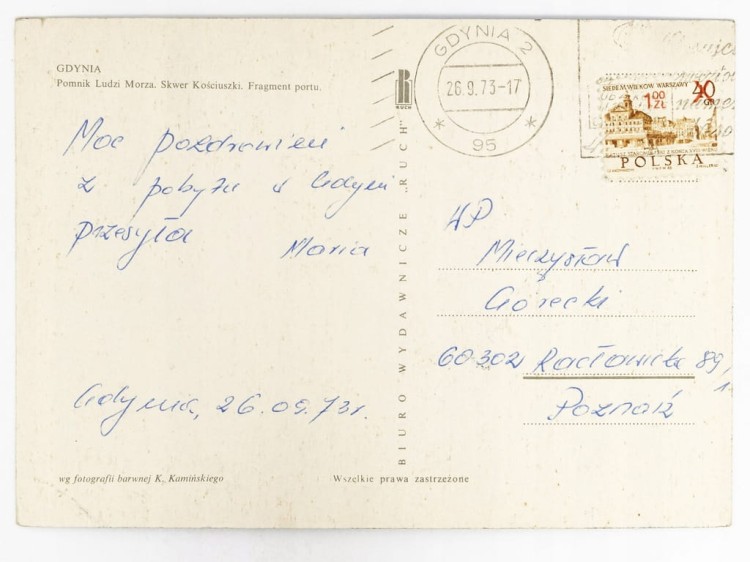 GDYNIA
Pomnik Ludzi Morza. Skwer Kościuszki. Fragment portu.
Moc pozdrowień
z pobytu w Gdyni
przesyła Maria
Gdynia, 26.09.73r.
wg fotografii barwnej K. Kamińskiego
Wszelkie prawa zastrzeżone
BIURO WYDAWNICZE „RUCH”
RUCH
GDYNIA 2
26.9.73-17
* 95 *
SIEDEM WIEKÓW WARSZAWY
40 GR
1.00 ZŁ
POLSKA
WP
Mieczysław
Górecki
60302 Racławicka 89,
1
Poznań